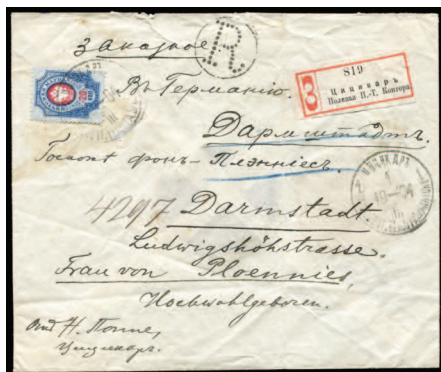 Заказное
R.
819
Цицикаръ
Полевая П.-Т. Контора.
З
Въ Германію.
Дармштадтъ.
Госпожѣ фонъ-Плэнніесъ.
4297 Darmstadt.
Ludwigshöhstrasse.
Frau von Ploennies,
Hochwohlgeboren.
Н. Поппе,
Цицикаръ.
ЦИЦИКАРЪ